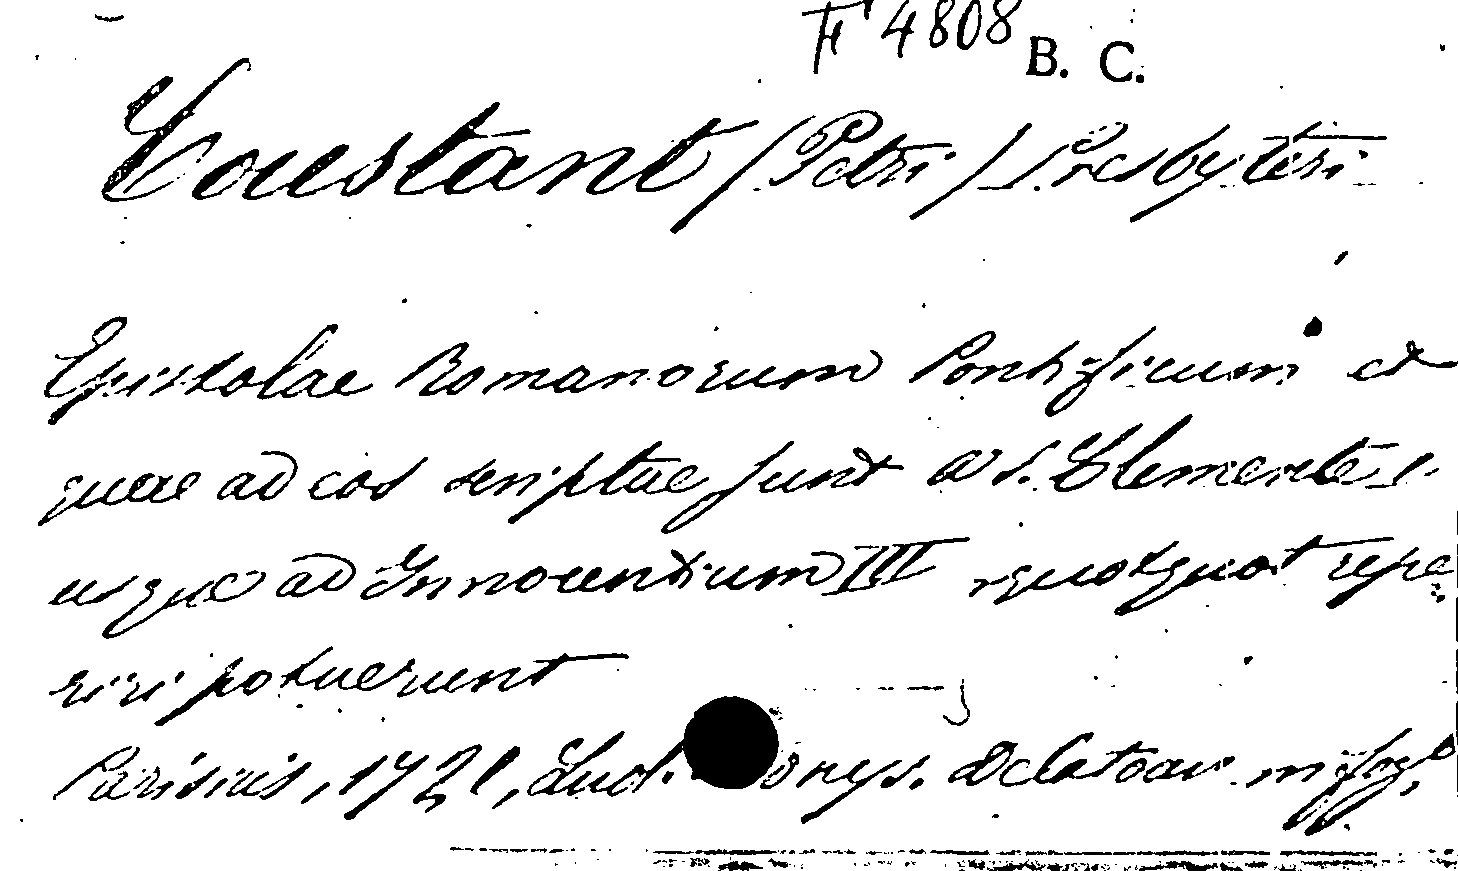 F 4808 B. C.
Coustant (Petri) Presbyteri
Epistolae Romanorum Pontificum et
quae ad eos scriptae sunt a S. Clemente I.
usque ad Innocentium III quotquot repe
riri potuerunt
Parisiis, 1721, Lud. onys. Delatour in fogl.